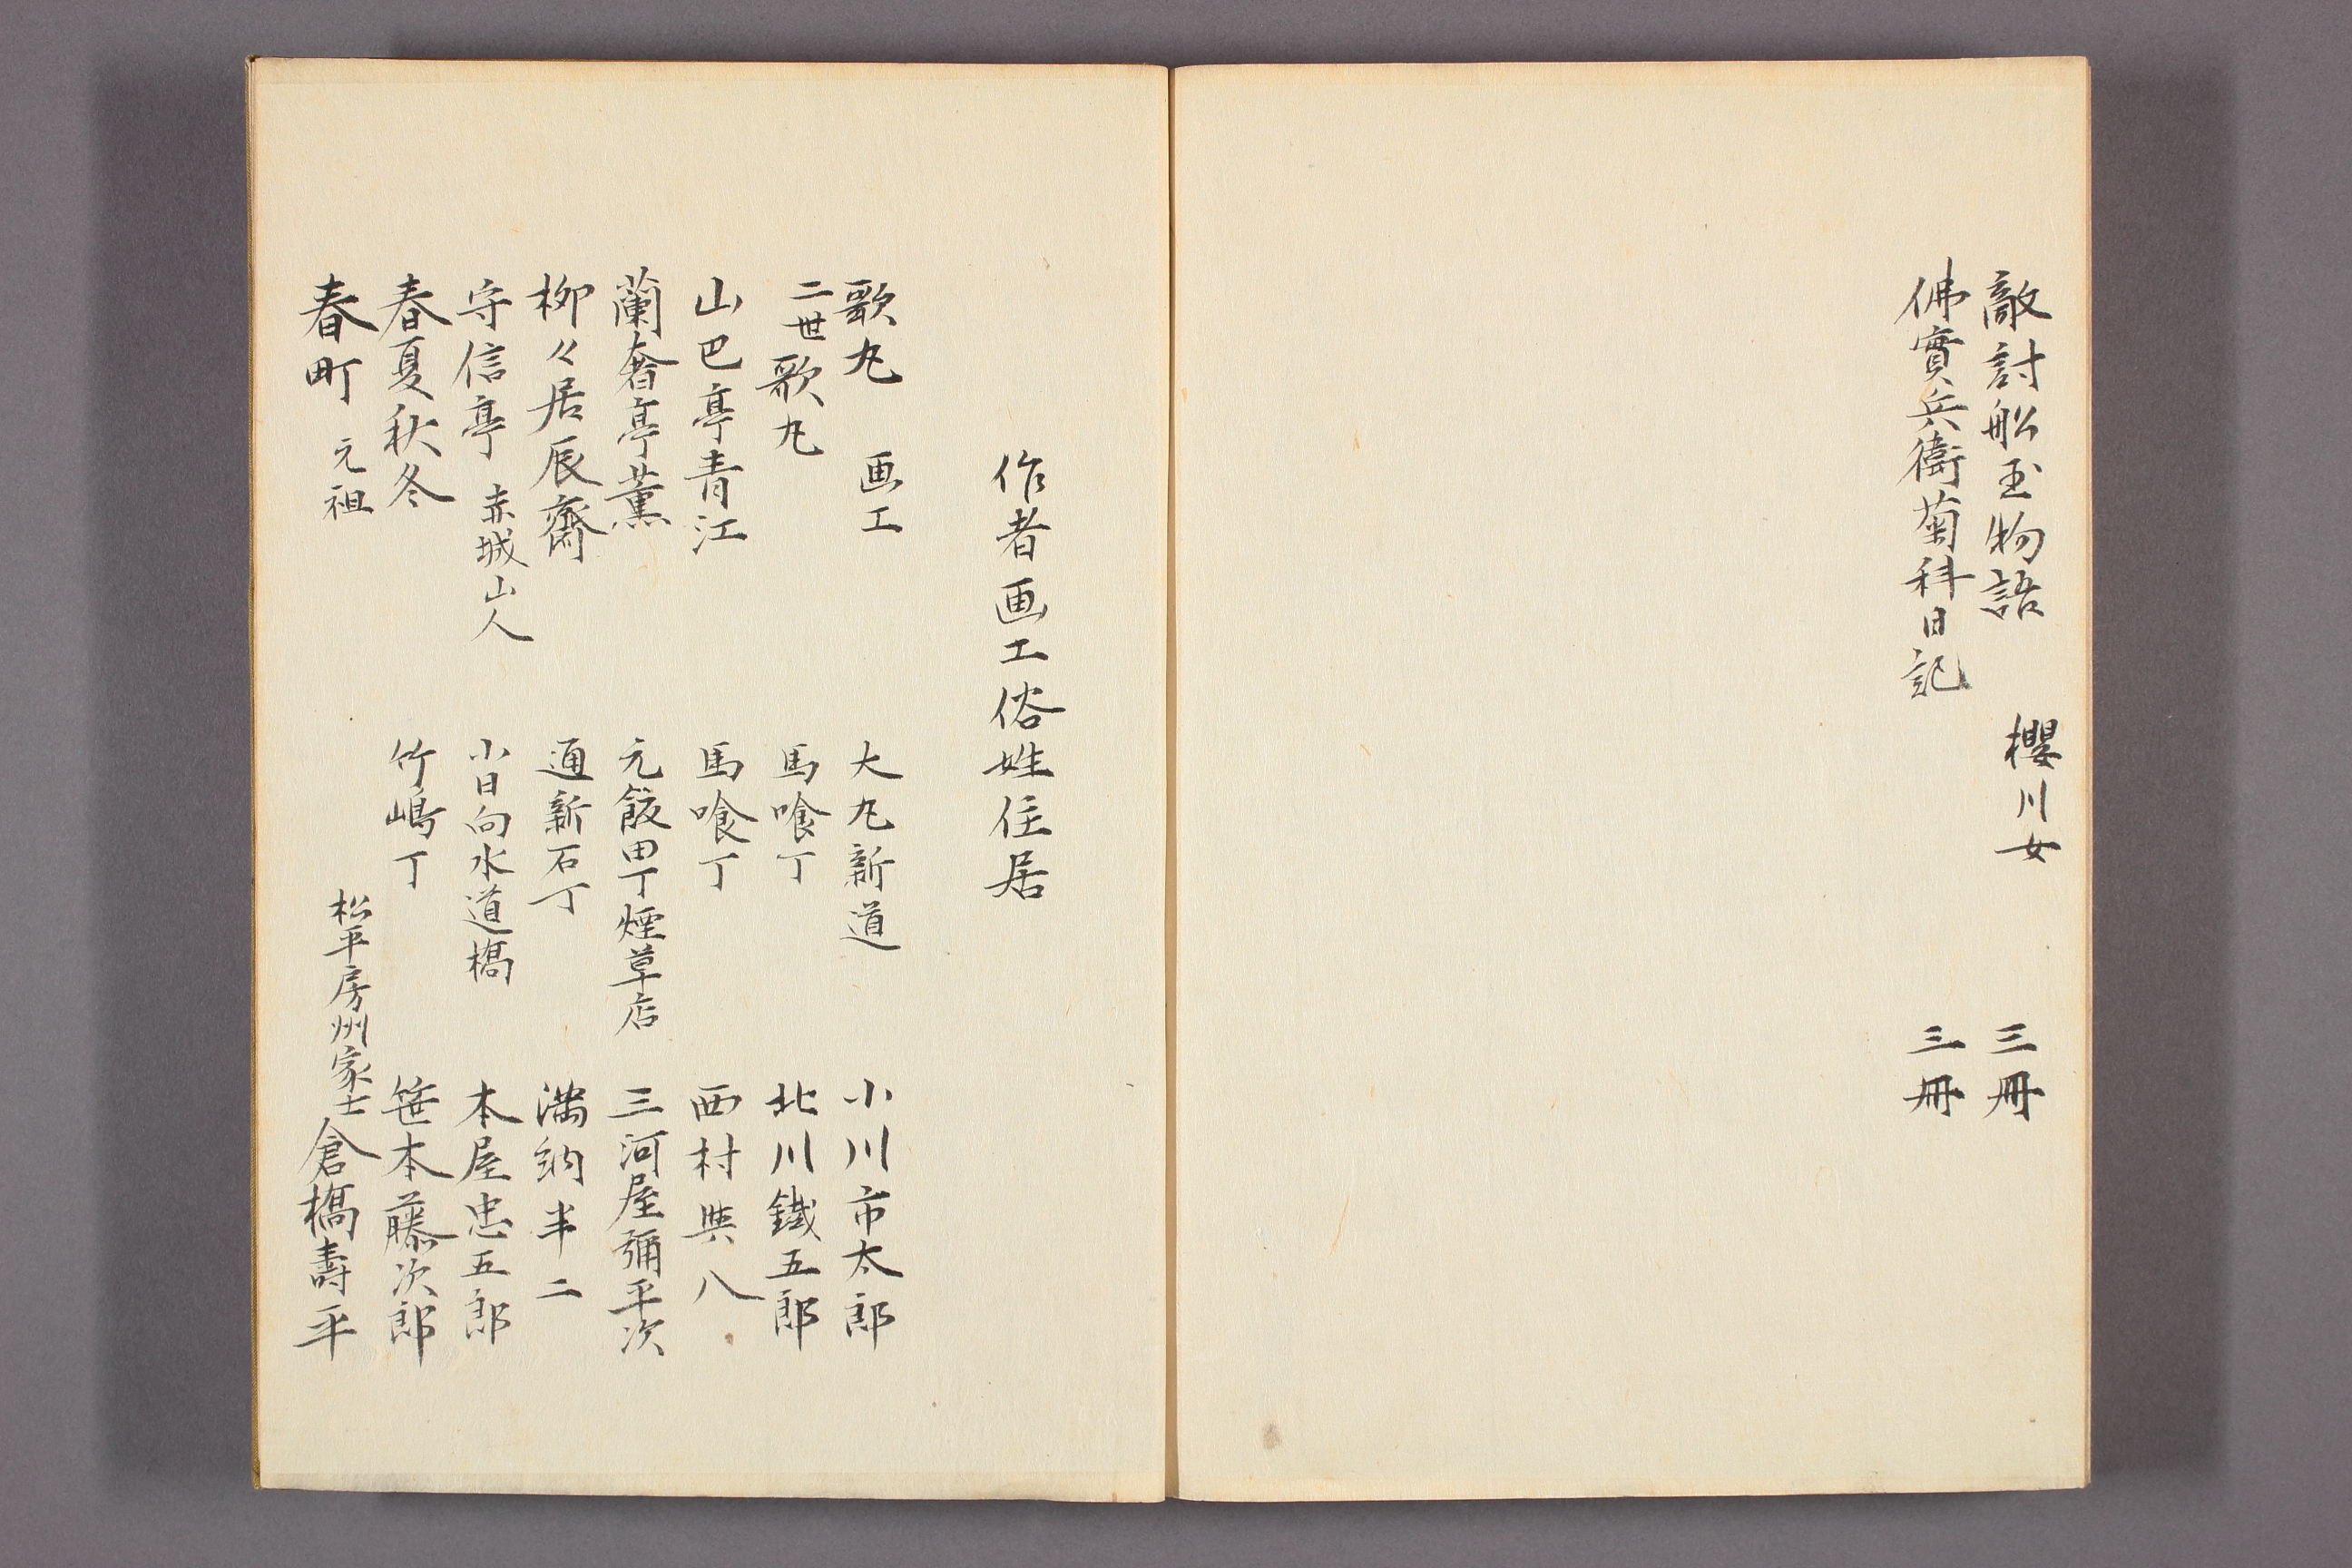 敵討船玉物語　櫻川女　三冊
佛實兵衛菊科日記　三冊
作者画工俗姓住居
歌丸　画工　大丸新道　小川市太郎
二世歌丸　馬喰丁　北川鐵五郎
山巴亭青江　馬喰丁　西村與八
蘭奢亭薫　元飯田丁煙草店　三河屋彌平次
柳々居辰齋　通新石丁　満納半二
守信亭　赤城山人　小日向水道橋　本屋忠五郎
春夏秋冬　竹嶋丁　笹本藤次郎
春町　元祖　松平房州家士　倉橋壽平